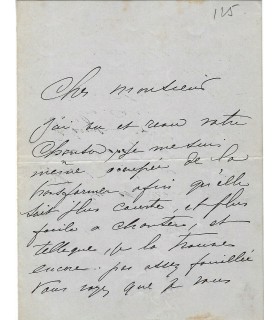 125
Cher Monsieur
J'ai vu et revu votre
Chanson je me suis
même occupée de la
transformer afin qu'elle
soit plus courte, et plus
facile à chanter, et
telle que je la trouve
encore pas assez fouillée
Vous voyez que je vous